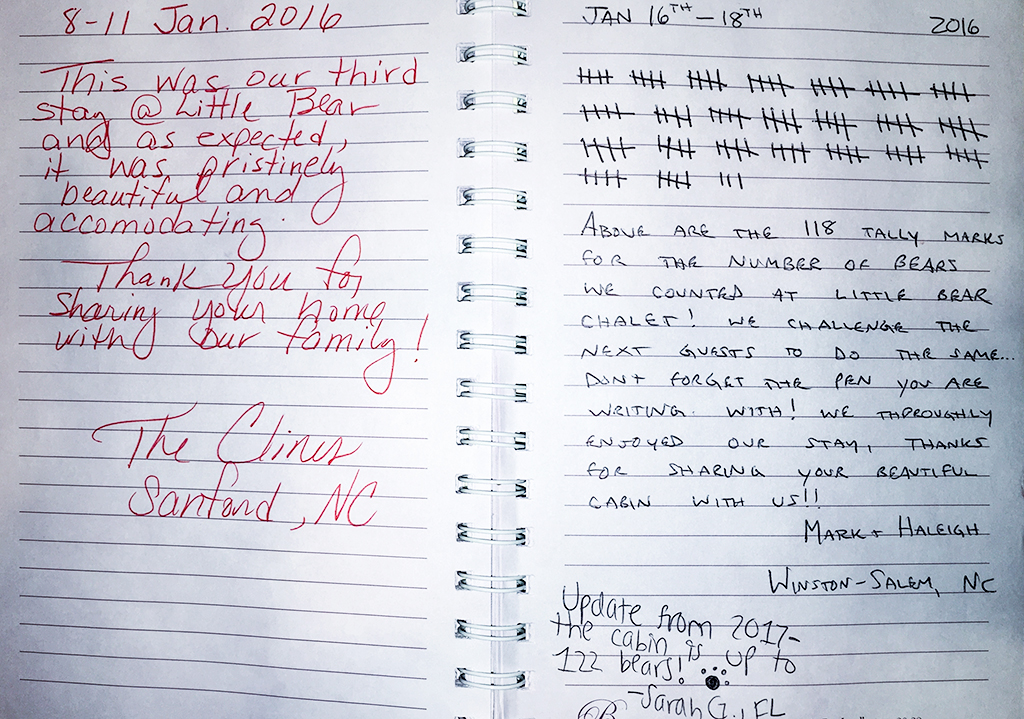 8-11 Jan. 2016
This was our third
stay @ Little Bear
and as expected,
it was pristinely
beautiful and
accomodating.
Thank you for
sharing your home
with our family!
The Clines
Sanford, NC
JAN 16TH-18TH 2016
ABOVE ARE THE 118 TALLY MARKS
FOR THE NUMBER OF BEARS
WE COUNTED AT LITTLE BEAR
CHALET! WE CHALLENGE THE
NEXT GUESTS TO DO THE SAME...
DON'T FORGET THE PEN YOU ARE
WRITING WITH! WE THOROUGHLY
ENJOYED OUR STAY, THANKS
FOR SHARING YOUR BEAUTIFUL
CABIN WITH US!!
MARK + HALEIGH
WINSTON-SALEM, NC
Update from 2017-
the cabin is up to
122 bears!
-Sarah G., FL